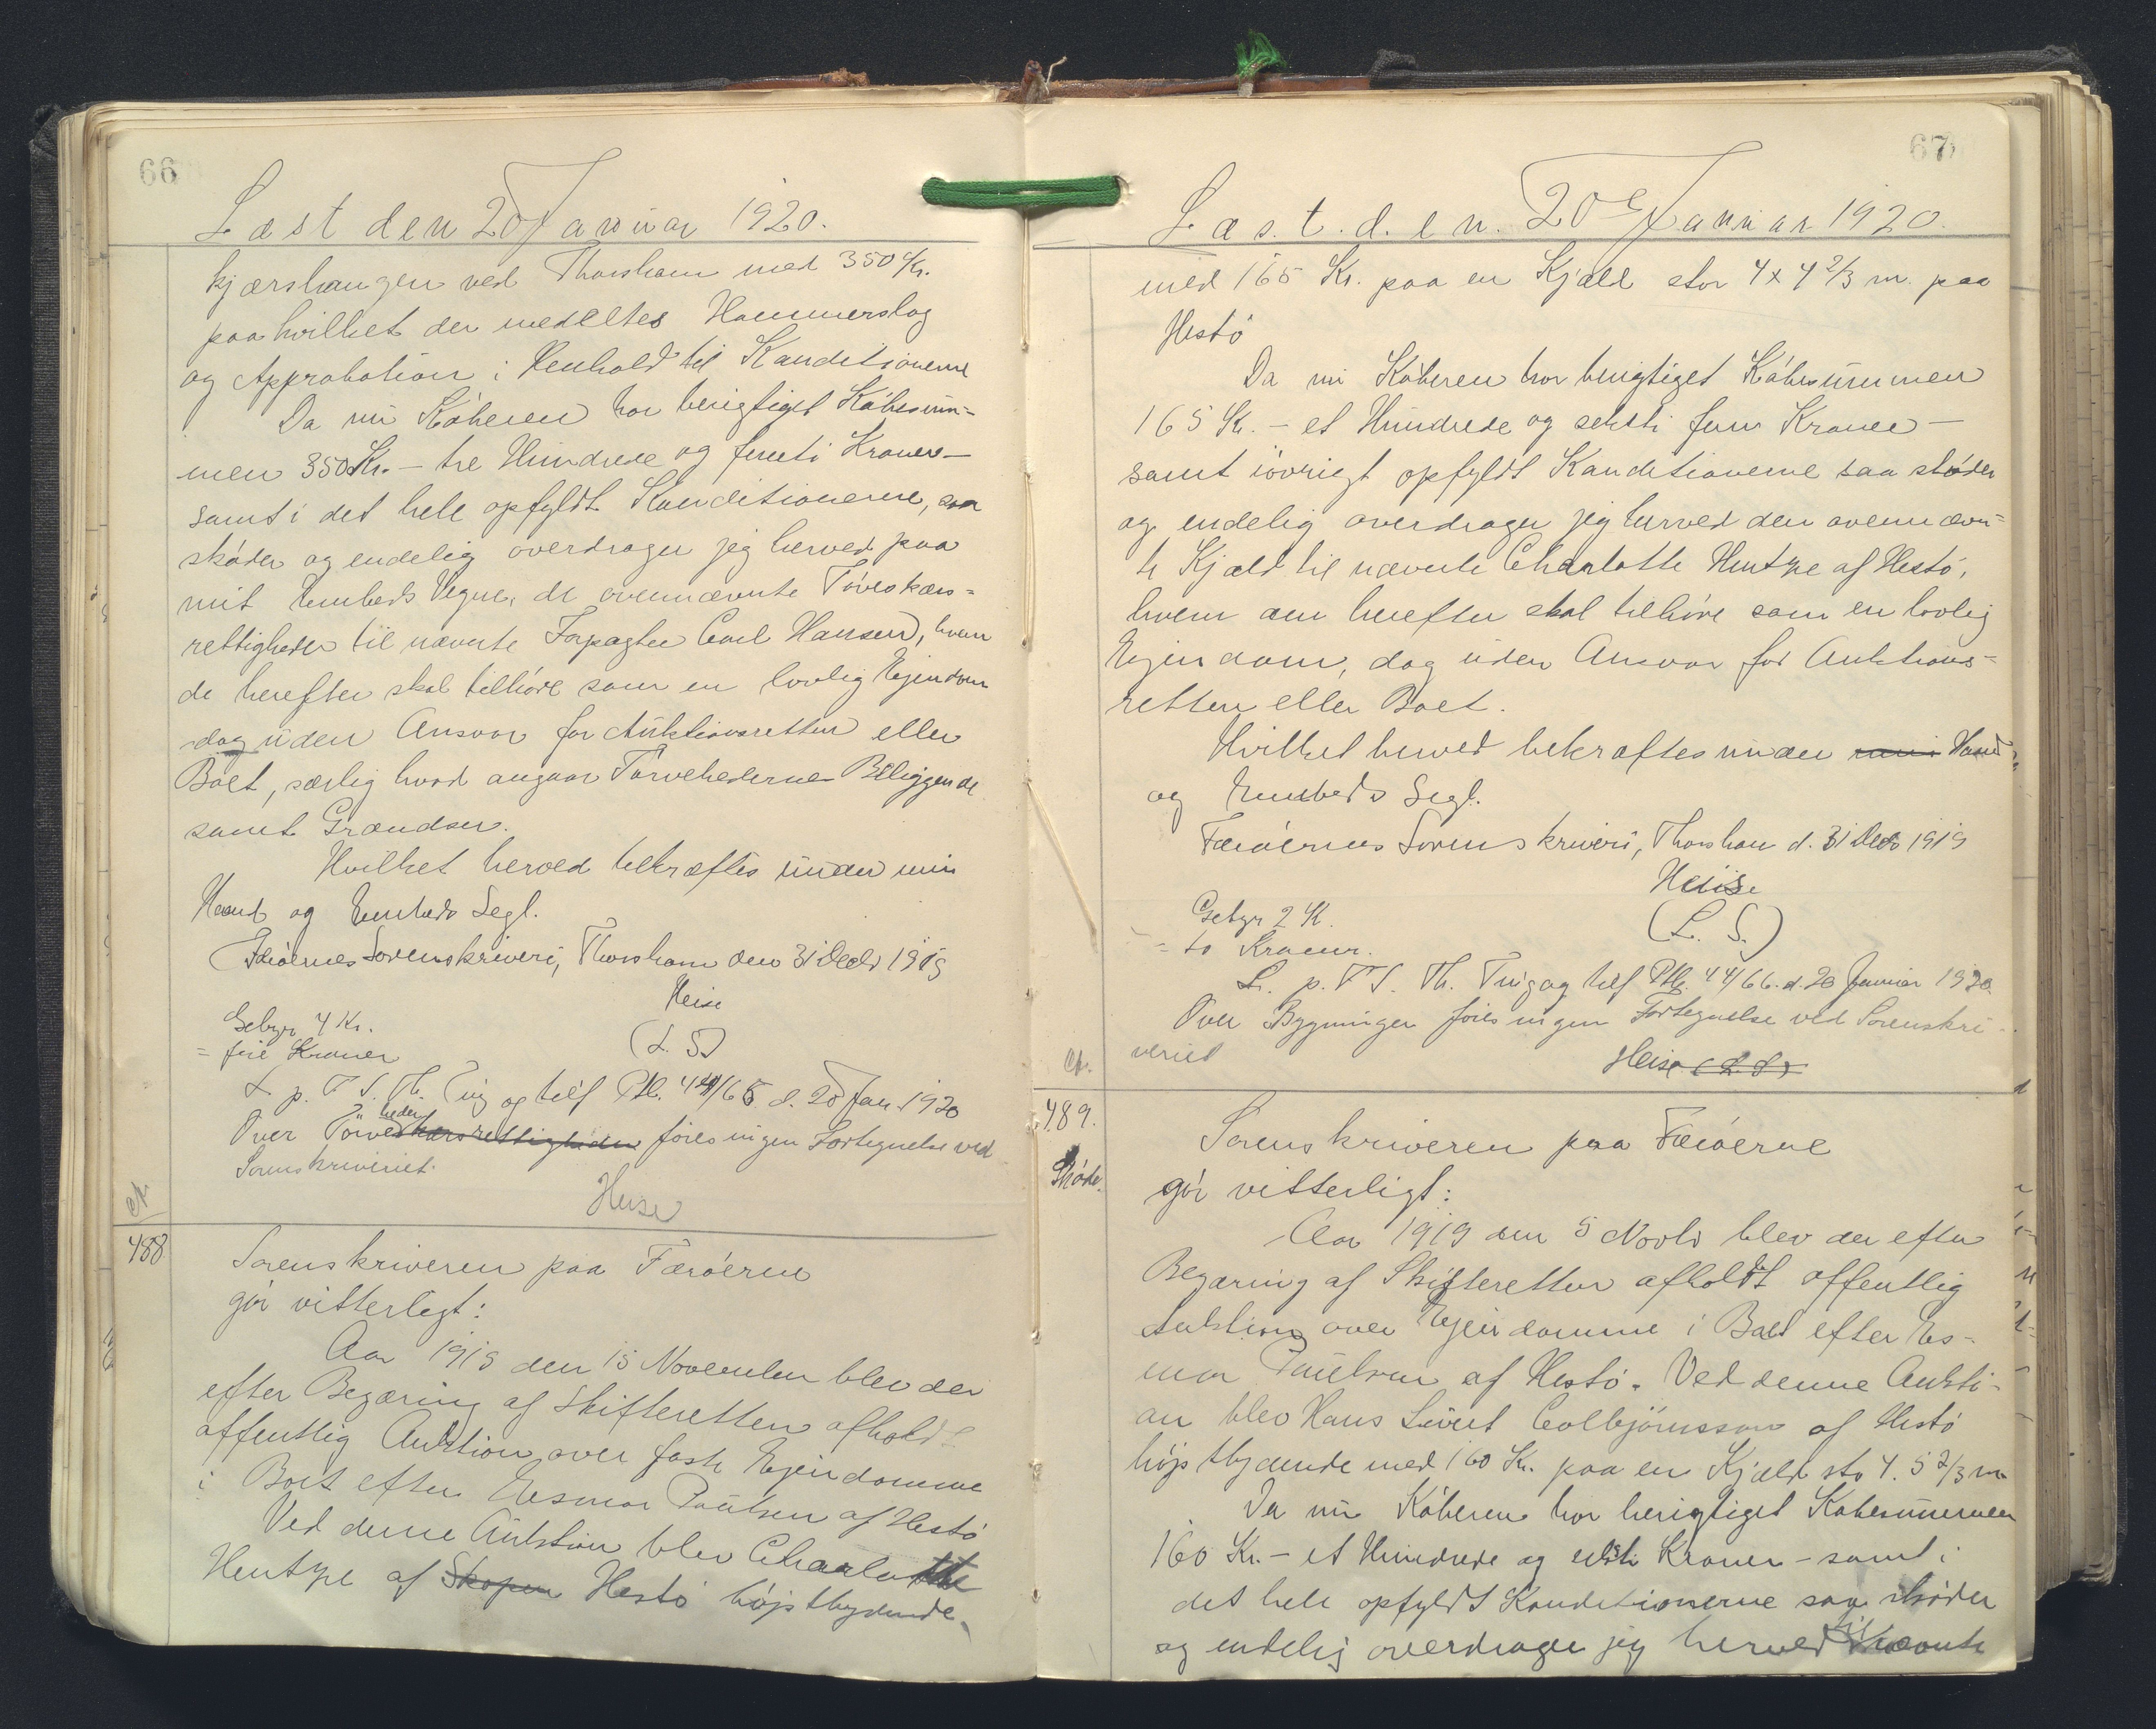 66
Læst den 20 Januar 1920.
kjærshaugen ved Thorshavn med 350 Kr.
paa hvilket der meddeltes Hammerslag
og Approbation i Henhold til Konditionerne
Da nu Köberen har berigtiget Köbesum=
men 350 Kr. – tre Hundrede og femti Kroner –
samt i det hele opfyldt Konditionerne, saa
sköder og endelig overdrager jeg herved paa
mit Embeds Vegne, de ovennævnte Törveskærs=
rettigheder til nævnte Forpagter Carl Hansen, hvem
de herefter skal tilhöre som en lovlig Ejendom
dog uden Ansvar for Auktionsretten eller
Boet, særlig hvad angaar Törvehedernes Beliggende
samt Grændser.
Hvilket herved bekræftes under min
Haand og Embeds Segl.
Færöernes Sorenskriveri, Thorshavn den 31 Decbr 1919
Heise
(L. S.)
Gebyr 4 Kr.
= fire Kroner
L. p. F. S. Th. Ting og tilf Ptb. 44/65 d. 20 Jan. 1920
Over Törveheder skærsrettigheder föres ingen Fortegnelse ved
Sorenskriveriet.
Heise
488
Sorenskriveren paa Færöerne
gör vitterligt:
Aar 1919 den 15 November blev der
efter Begæring af Skifteretten afholdt
offentlig Auktion over faste Ejendomme
i Boet efter Esmar Poulsen af Hestö
Ved denne Auktion blev Charlotte
Hentze af Skopen Hestö höjstbydende
67
Læst den 20e Januar 1920.
med 165 Kr. paa en Kjæld stor 4 x 4 2/3 m. paa
Hestö
Da nu Köberen har berigtiget Köbesummen
165 Kr. – et Hundrede og seksti fem Kroner –
samt iövrigt opfyldt Konditionerne saa sköder
og endelig overdrager jeg herved den ovennævn=
te Kjæld til nævnte Charlotte Hentze af Hestö,
hvem den herefter skal tilhöre som en lovlig
Ejendom, dog uden Ansvar for Auktions=
retten eller Boet.
Hvilket herved bekræftes under min Haand
og Embeds Segl.
Færöernes Sorenskriveri, Thorshavn d. 31 Decbr 1919
Heise
(L. S.)
Gebyr 2 Kr.
= to Kroner.
L. p. F. S. Th. Ting og tilf Ptb. 44/66. d. 20 Januar 1920.
Over Bygninger föres ingen Fortegnelse ved Sorenskri
veriet
Heise (L. S.)
489.
Sköde.
Sorenskriveren paa Færöerne
gör vitterligt:
Aar 1919 den 5 Novbr blev der efter
Begæring af Skifteretten afholdt offentlig
Auktion over Ejendomme i Boet efter Es=
mar Poulsen af Hestö. Ved denne Aukti=
on blev Hans Sivert Colbjörnsson af Hestö
höjstbydende med 160 Kr. paa en Kjæld sto 4. 5 2/3 m
Da nu Köberen har berigtiget Köbesummen
160 Kr. – et Hundrede og seksti Kroner – samt i
det hele opfyldt Konditionerne saa sköder
og endelig overdrager jeg herved til nævnte